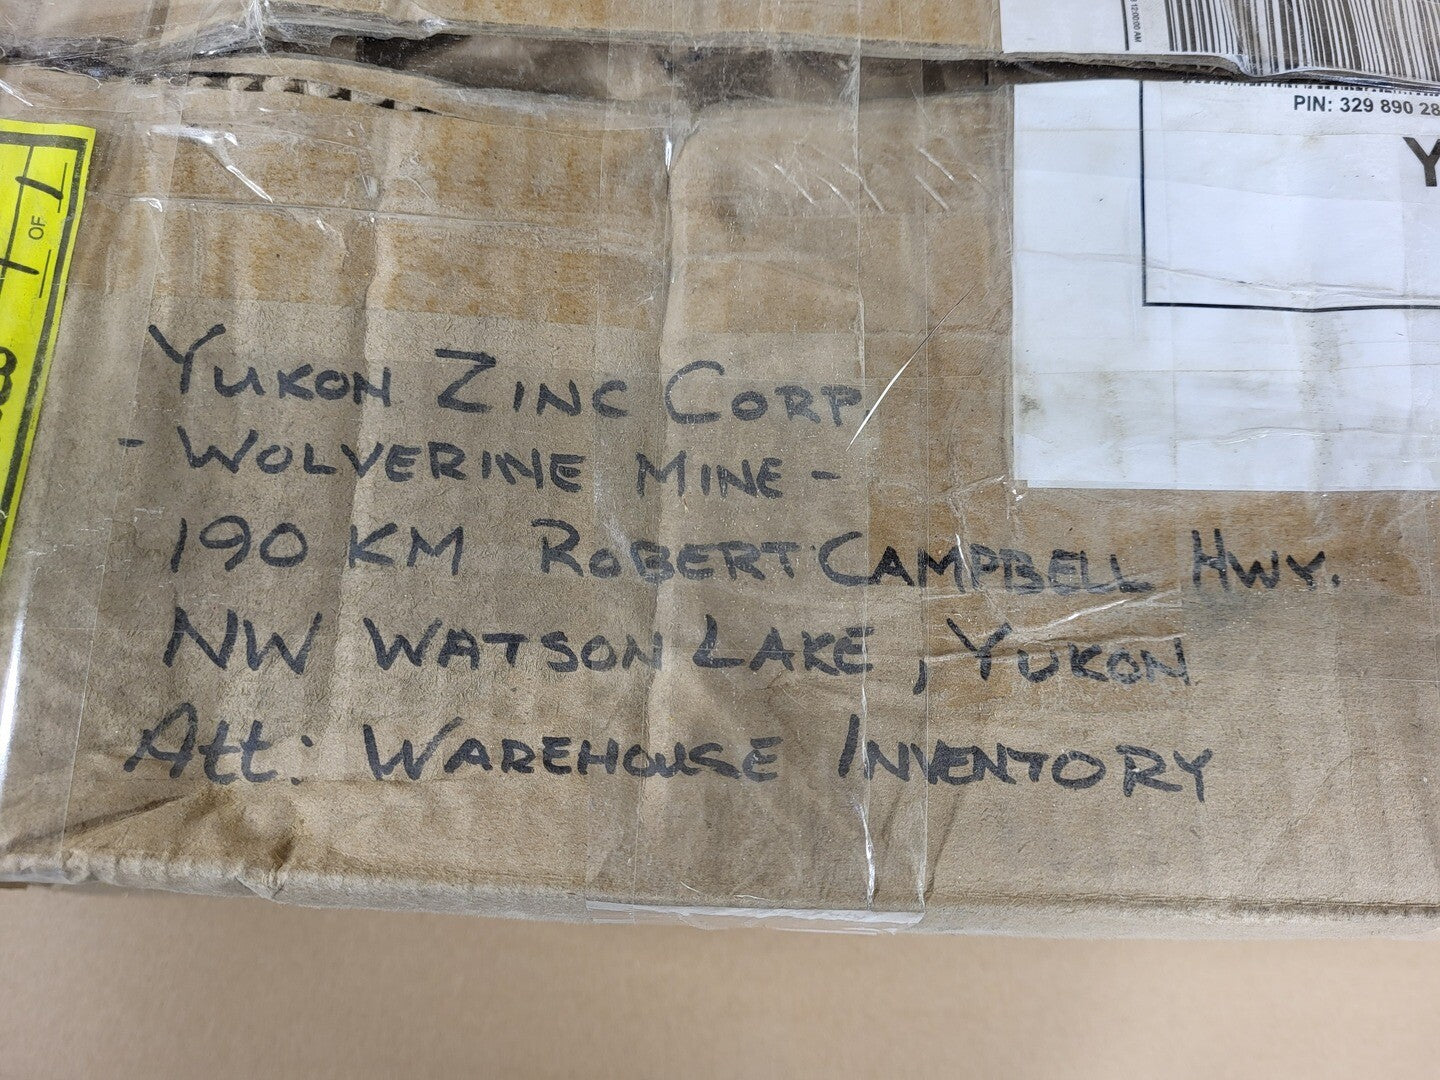 12:00:00 AM
PIN: 329 890 28
Y
OF 1
YUKON ZINC CORP.
- WOLVERINE MINE -
190 KM ROBERT CAMPBELL HWY.
NW WATSON LAKE, YUKON
Att: WAREHOUSE INVENTORY